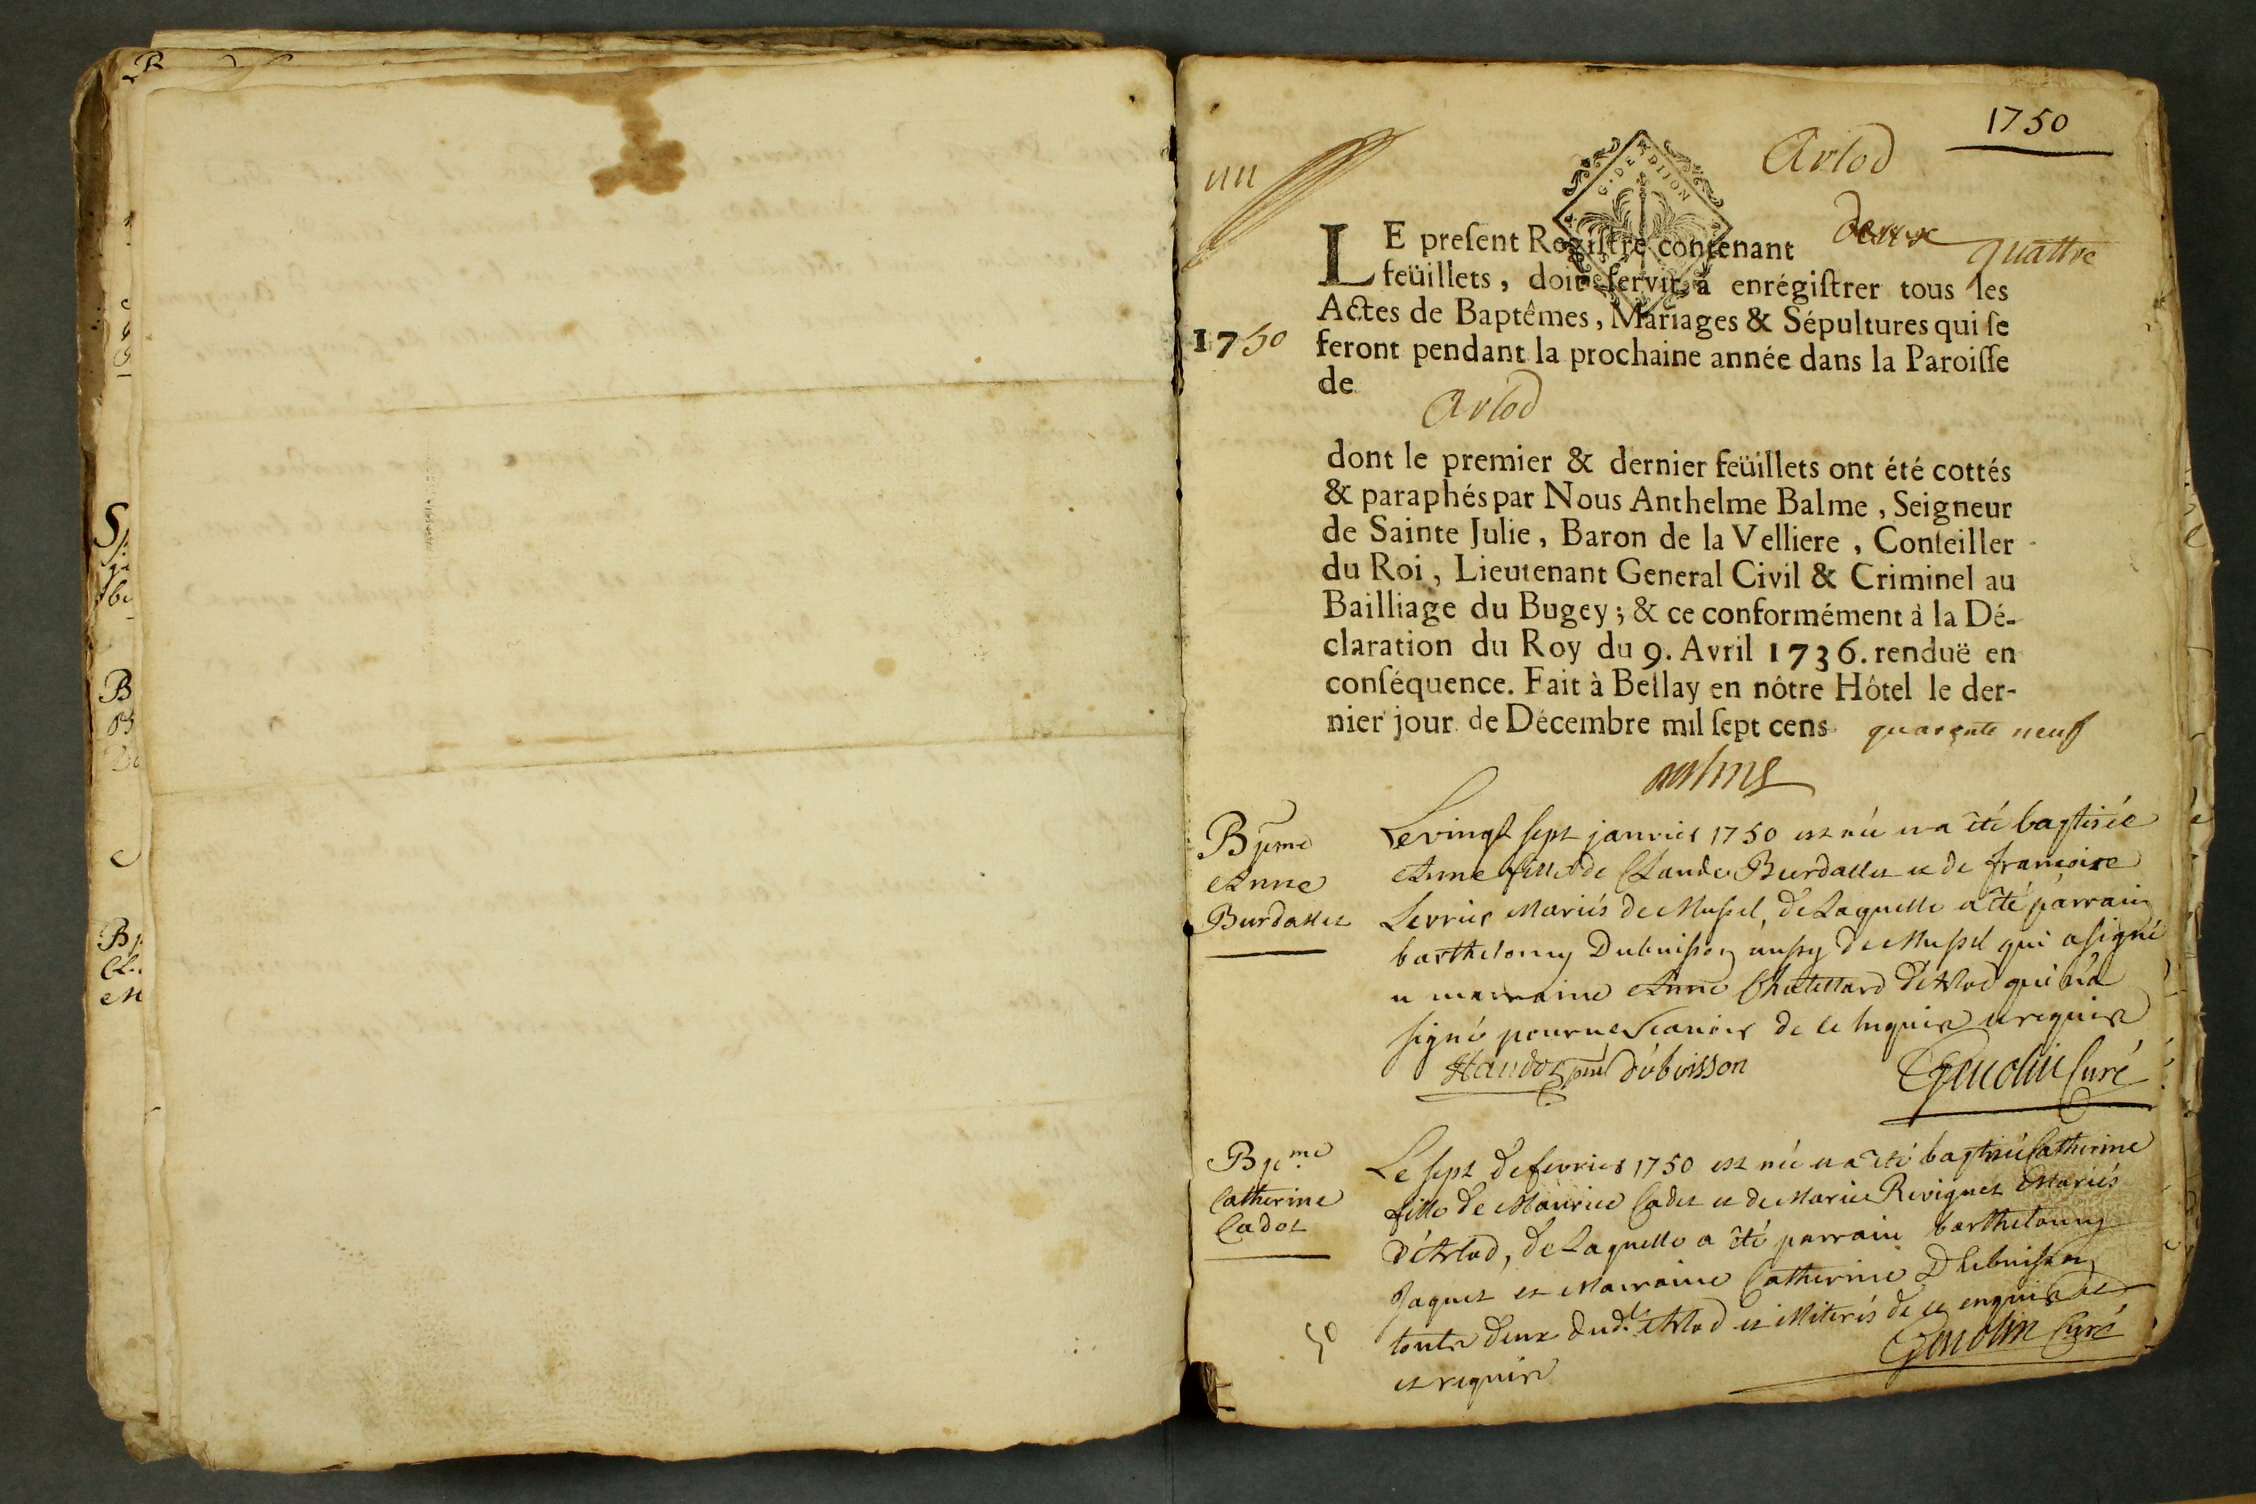 1750
Arlod
un
G. DE DIJON
deux quattre
LE preſent Regiſtre contenant
feüillets, doit ſervir à enrégiſtrer tous les
Actes de Baptêmes, Mariages & Sépultures qui ſe
1750
feront pendant la prochaine année dans la Paroiſſe
de
Arlod
dont le premier & dernier feüillets ont été cottés
& paraphés par Nous Anthelme Balme, Seigneur
de Sainte Julie, Baron de la Velliere, Conſeiller
du Roi, Lieutenant General Civil & Criminel au
Bailliage du Bugey; & ce conformément à la Dé-
claration du Roy du 9. Avril 1736. renduë en
conſéquence. Fait à Bellay en nôtre Hôtel le der-
nier jour de Décembre mil ſept cens quarente neuf
Balme
Bpeme
Anne
Burdallet
Le vingt sept janvier 1750 est née et a été baptisée
Anne fille de Claude Burdallet et de francoise
Levrier Mariés de Mussel, de Laquelle a été parrain
barthelomy Dubuisson aussy de Mussel qui a signé
et marraine Anne Chatellard d'Arlod qui n'a
signé pour ne scavoir de ce enquise et requise
dubuisson
Genolin Curé
Bpeme
Catherine
Cadot
Le sept de fevrier 1750 est née et a été baptisé Catherine
fille de Maurice Cadot et de Marie Reviguet Mariés
d'Arlod, de Laquelle a été parrain barthelomy
Jaquet et Marraine Catherine Debuisson
touts deux dud. Arlod et illiterés de ce enquis
et requis
Genolin Curé
50